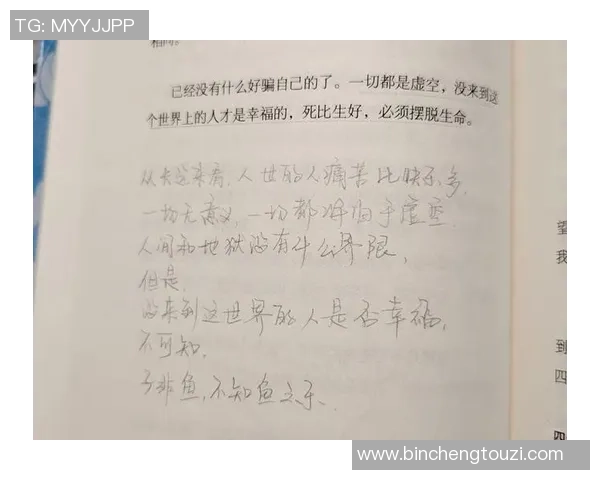 TG: MYYJJPP
相同。
已经没有什么好骗自己的了。一切都是虚空，没来到这
个世界上的人才是幸福的，死比生好，必须摆脱生命。
从长远来看，人世的人痛苦比快乐多，
一切无意义，一切都将归于虚空
人间和地狱没有什么界限，
但是，
没来到这世界的人是否幸福，
不可知，
子非鱼，不知鱼之乐、
望
我
到
四
四
www.binchengtouzi.com